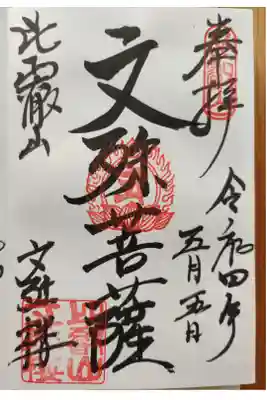 奉拝
令和四年
五月五日
文殊菩薩
比叡山
文殊楼